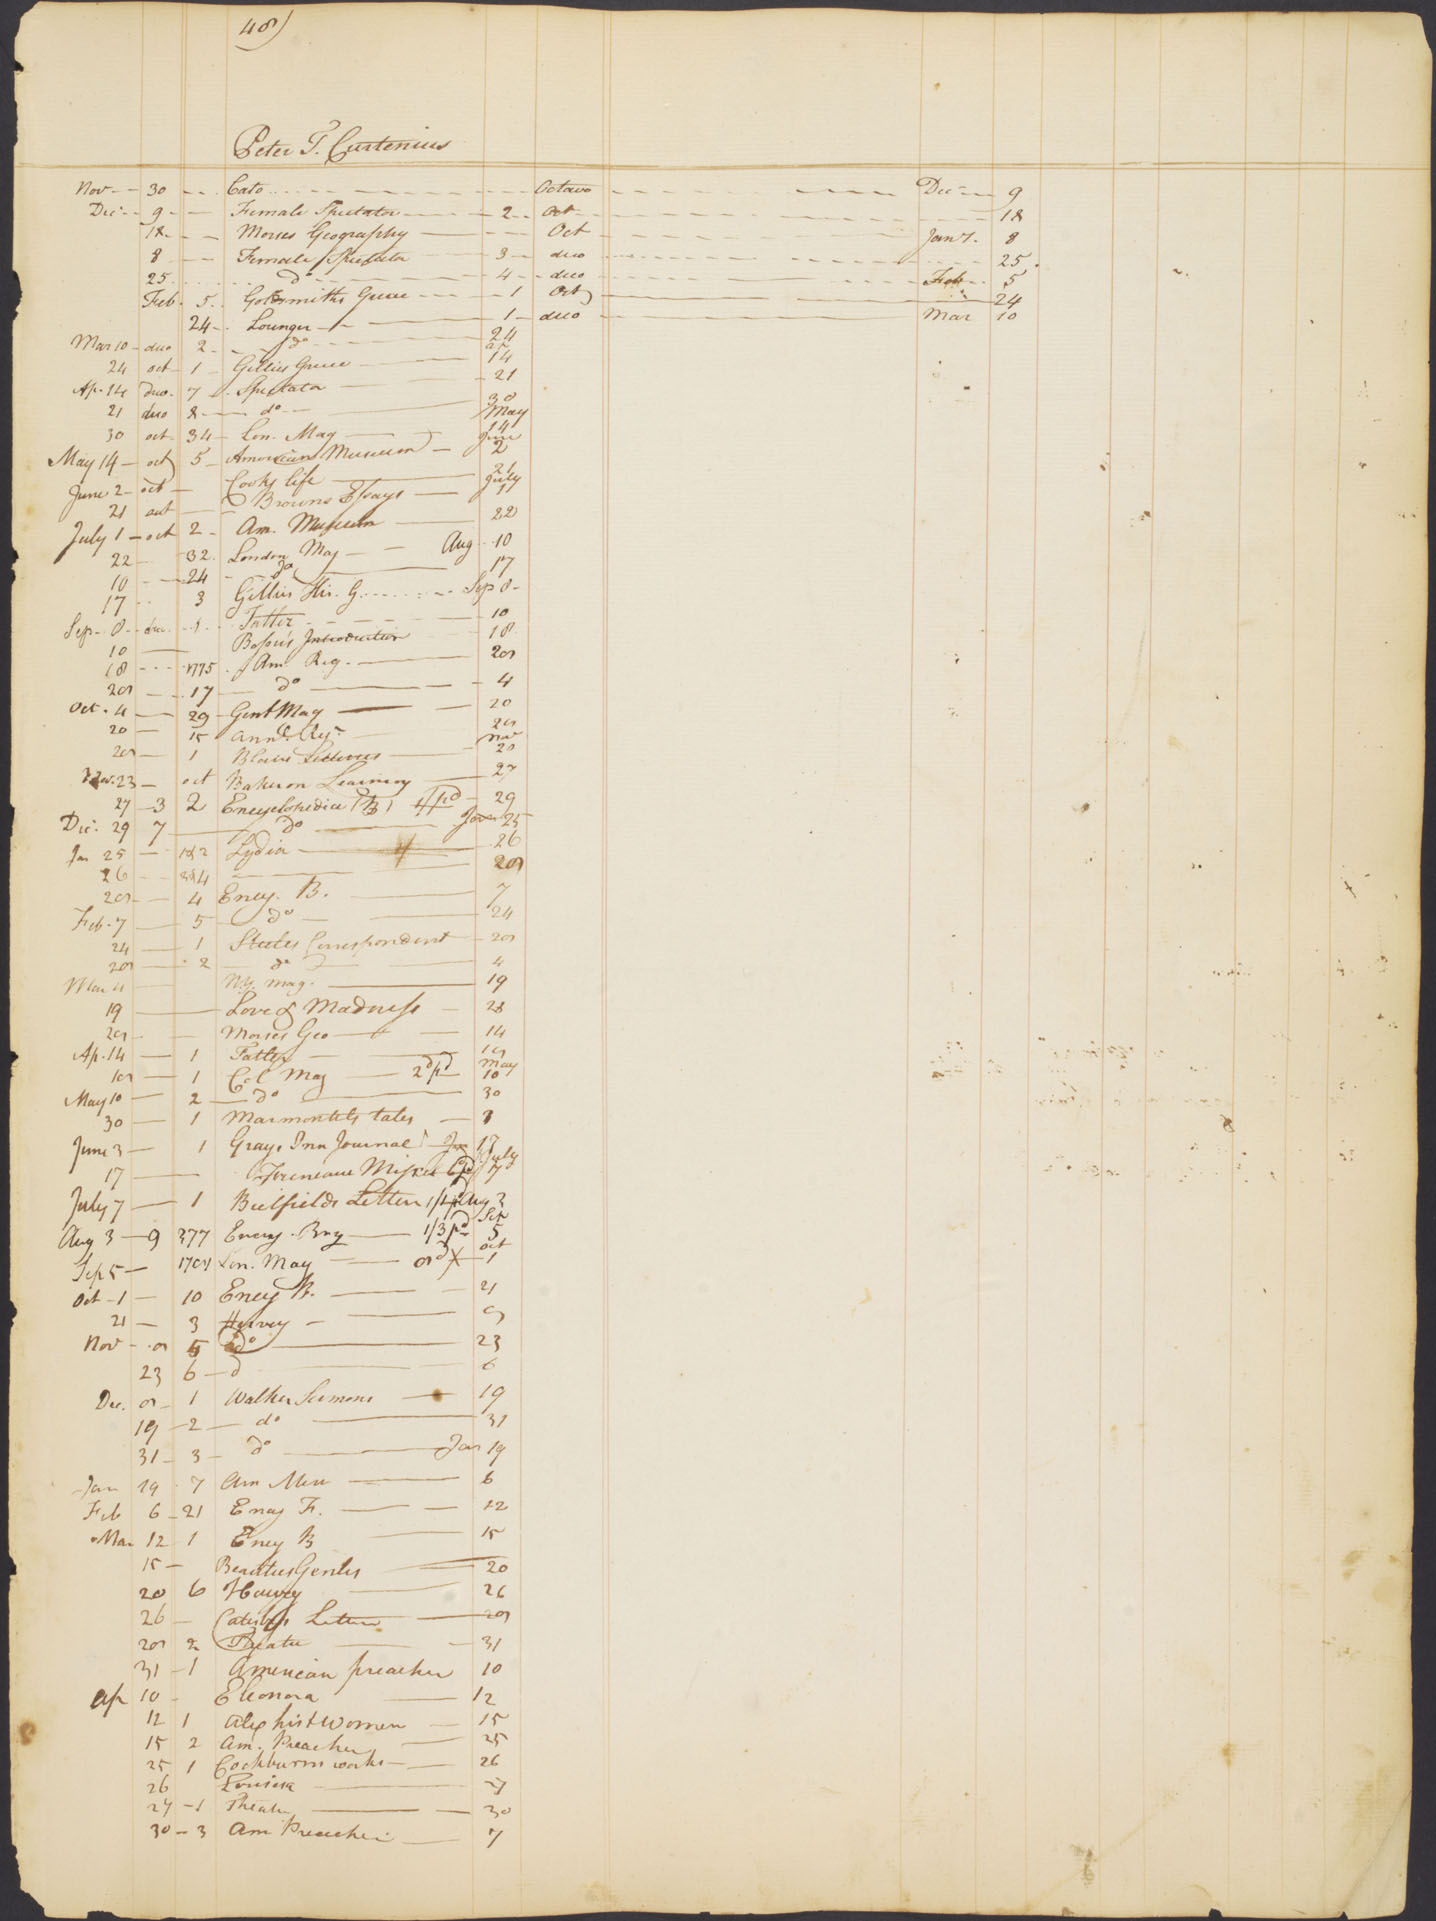 48)
Peter T. Curtenius
Nov 30 Cato Octavo Dec 9
Dec 9 Female Spectator 2 Oct 18
18 Morses Geography Oct Jany. 8
8 Female Spectator 3 duo 25
25 do 4 duo Feb 5
Feb 5 Goldsmiths Greece 1 Oct 24
24 Lounger 1 duo Mar 10
Mar 10 duo 2 do 24
24 oct 1 Gillies Greece 14
Ap. 14 duo. 7 Spectator 21
21 duo 8 do 30
30 oct 34 Lon. Mag May 14
May 14 oct 5 American Museum June 2
June 2 oct Cooks life 21
21 oct Browns Essays July 1
July 1 oct 2 Am. Museum 22
22 32 London Mag Aug 10
10 24 do 17
17 3 Gillies His. G. Sep 8
Sep. 8 duo 1 Tatler 10
10 Introduction 18
18 1775 Am Reg. 28
28 17 do 4
Oct. 4 29 Gent Mag 20
20 15 Annl. Reg. 28
28 1 Blairs Lectures Nov 23
Nov. 23 oct Baker on Learning 27
27 3 2 Encyclopedia (B) pd 29
Dec. 29 7 do Jan 25
Jan 25 1&2 Lydia 26
26 3&4 28
28 4 Ency. B. 7
Feb. 7 5 do 24
24 1 Steeles Correspondent 28
28 2 do 4
Mar 4 N.Y. mag. 19
19 Love & Madness 28
28 Morses Geo 14
Ap. 14 1 Tatler 18
18 1 Col Mag 2d pd May 10
May 10 2 do 30
30 1 Marmontels tales 3
June 3 1 Grays Inn Journal Jun 17
17 Freneaus Miscel pd July 7
July 7 1 Bielfields Letters Aug 3
Aug 3 9 377 Ency. Brig 1/3 pd Sep 5
Sep 5 Lon. Mag 8d Oct 1
Oct 1 10 Ency B. 21
21 3 Hervey 8
Nov 8 5 do 23
23 6 d 8
Dec. 8 1 Walker Sermons 19
19 2 do 31
31 3 do Jan 19
Jan 19 7 Am Mu 6
Feb 6 21 Ency F. 12
Mar 12 1 Ency B 15
15 Beauties Gentes 20
20 6 Hervey 26
26 Catesbys Letters 28
28 2 Theatre 31
31 1 American preacher 10
Ap 10 Eleonora 12
12 1 Alex hist Women 15
15 2 Am. Preacher 25
25 1 Cockburns works 26
26 Louisa 27
27 1 Theatre 30
30 3 Am Preacher 7